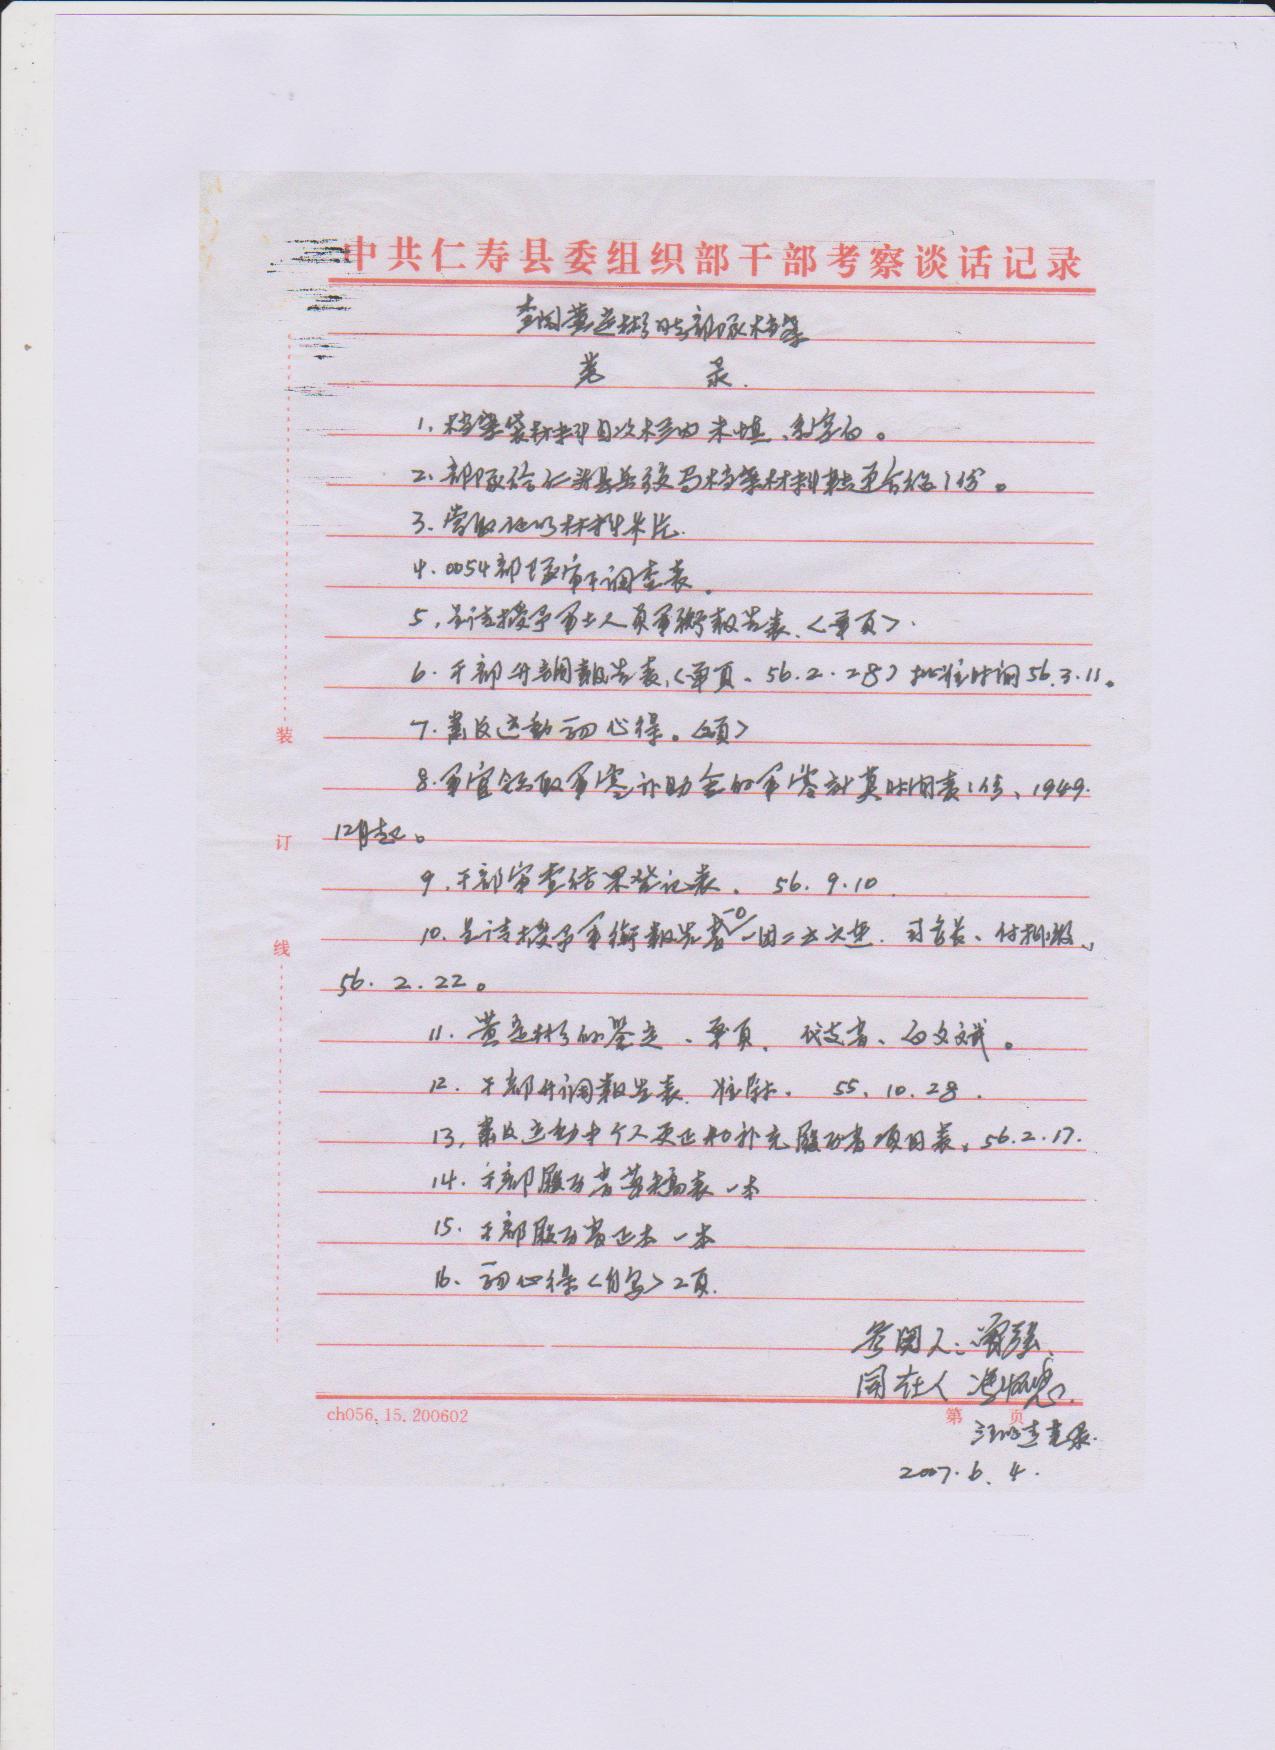 中共仁寿县委组织部干部考察谈话记录
查阅黄定彬时部队档案
笔 录.
1.档案袋材料目次栏内未填、系空白。
2.部队给仁寿县兵役局档案材料转递1份。
3.索取证明材料卡片.
4.0054部队审干调查表.
5.呈请授予军士人员军衔报告表.<单页>.
6.干部升调报告表.<单页、56.2.28>批准时间56.3.11。
7.肃反运动 心得。 页>
8.军官领取军龄补助金的军龄计算时间表1份、1949.
12月起。
9.干部审查结果登记表. 56.9.10
10.呈请授予军衔报告表 一团二 六连. 司务长、付排级、
56.2.22。
11.黄定彬的鉴定、单页. 代文武。
12.干部升调报告表. 55.10.28.
13.肃反运动中个人更正和补充履历书项目表.56.2.17.
14.干部履历书草稿表一本
15.干部履历书正本一本
16. 心得<自写>2页.
参阅人:
同在人
装
订
线
ch056.15.200602
第 页
笔录.
2007.6.4.